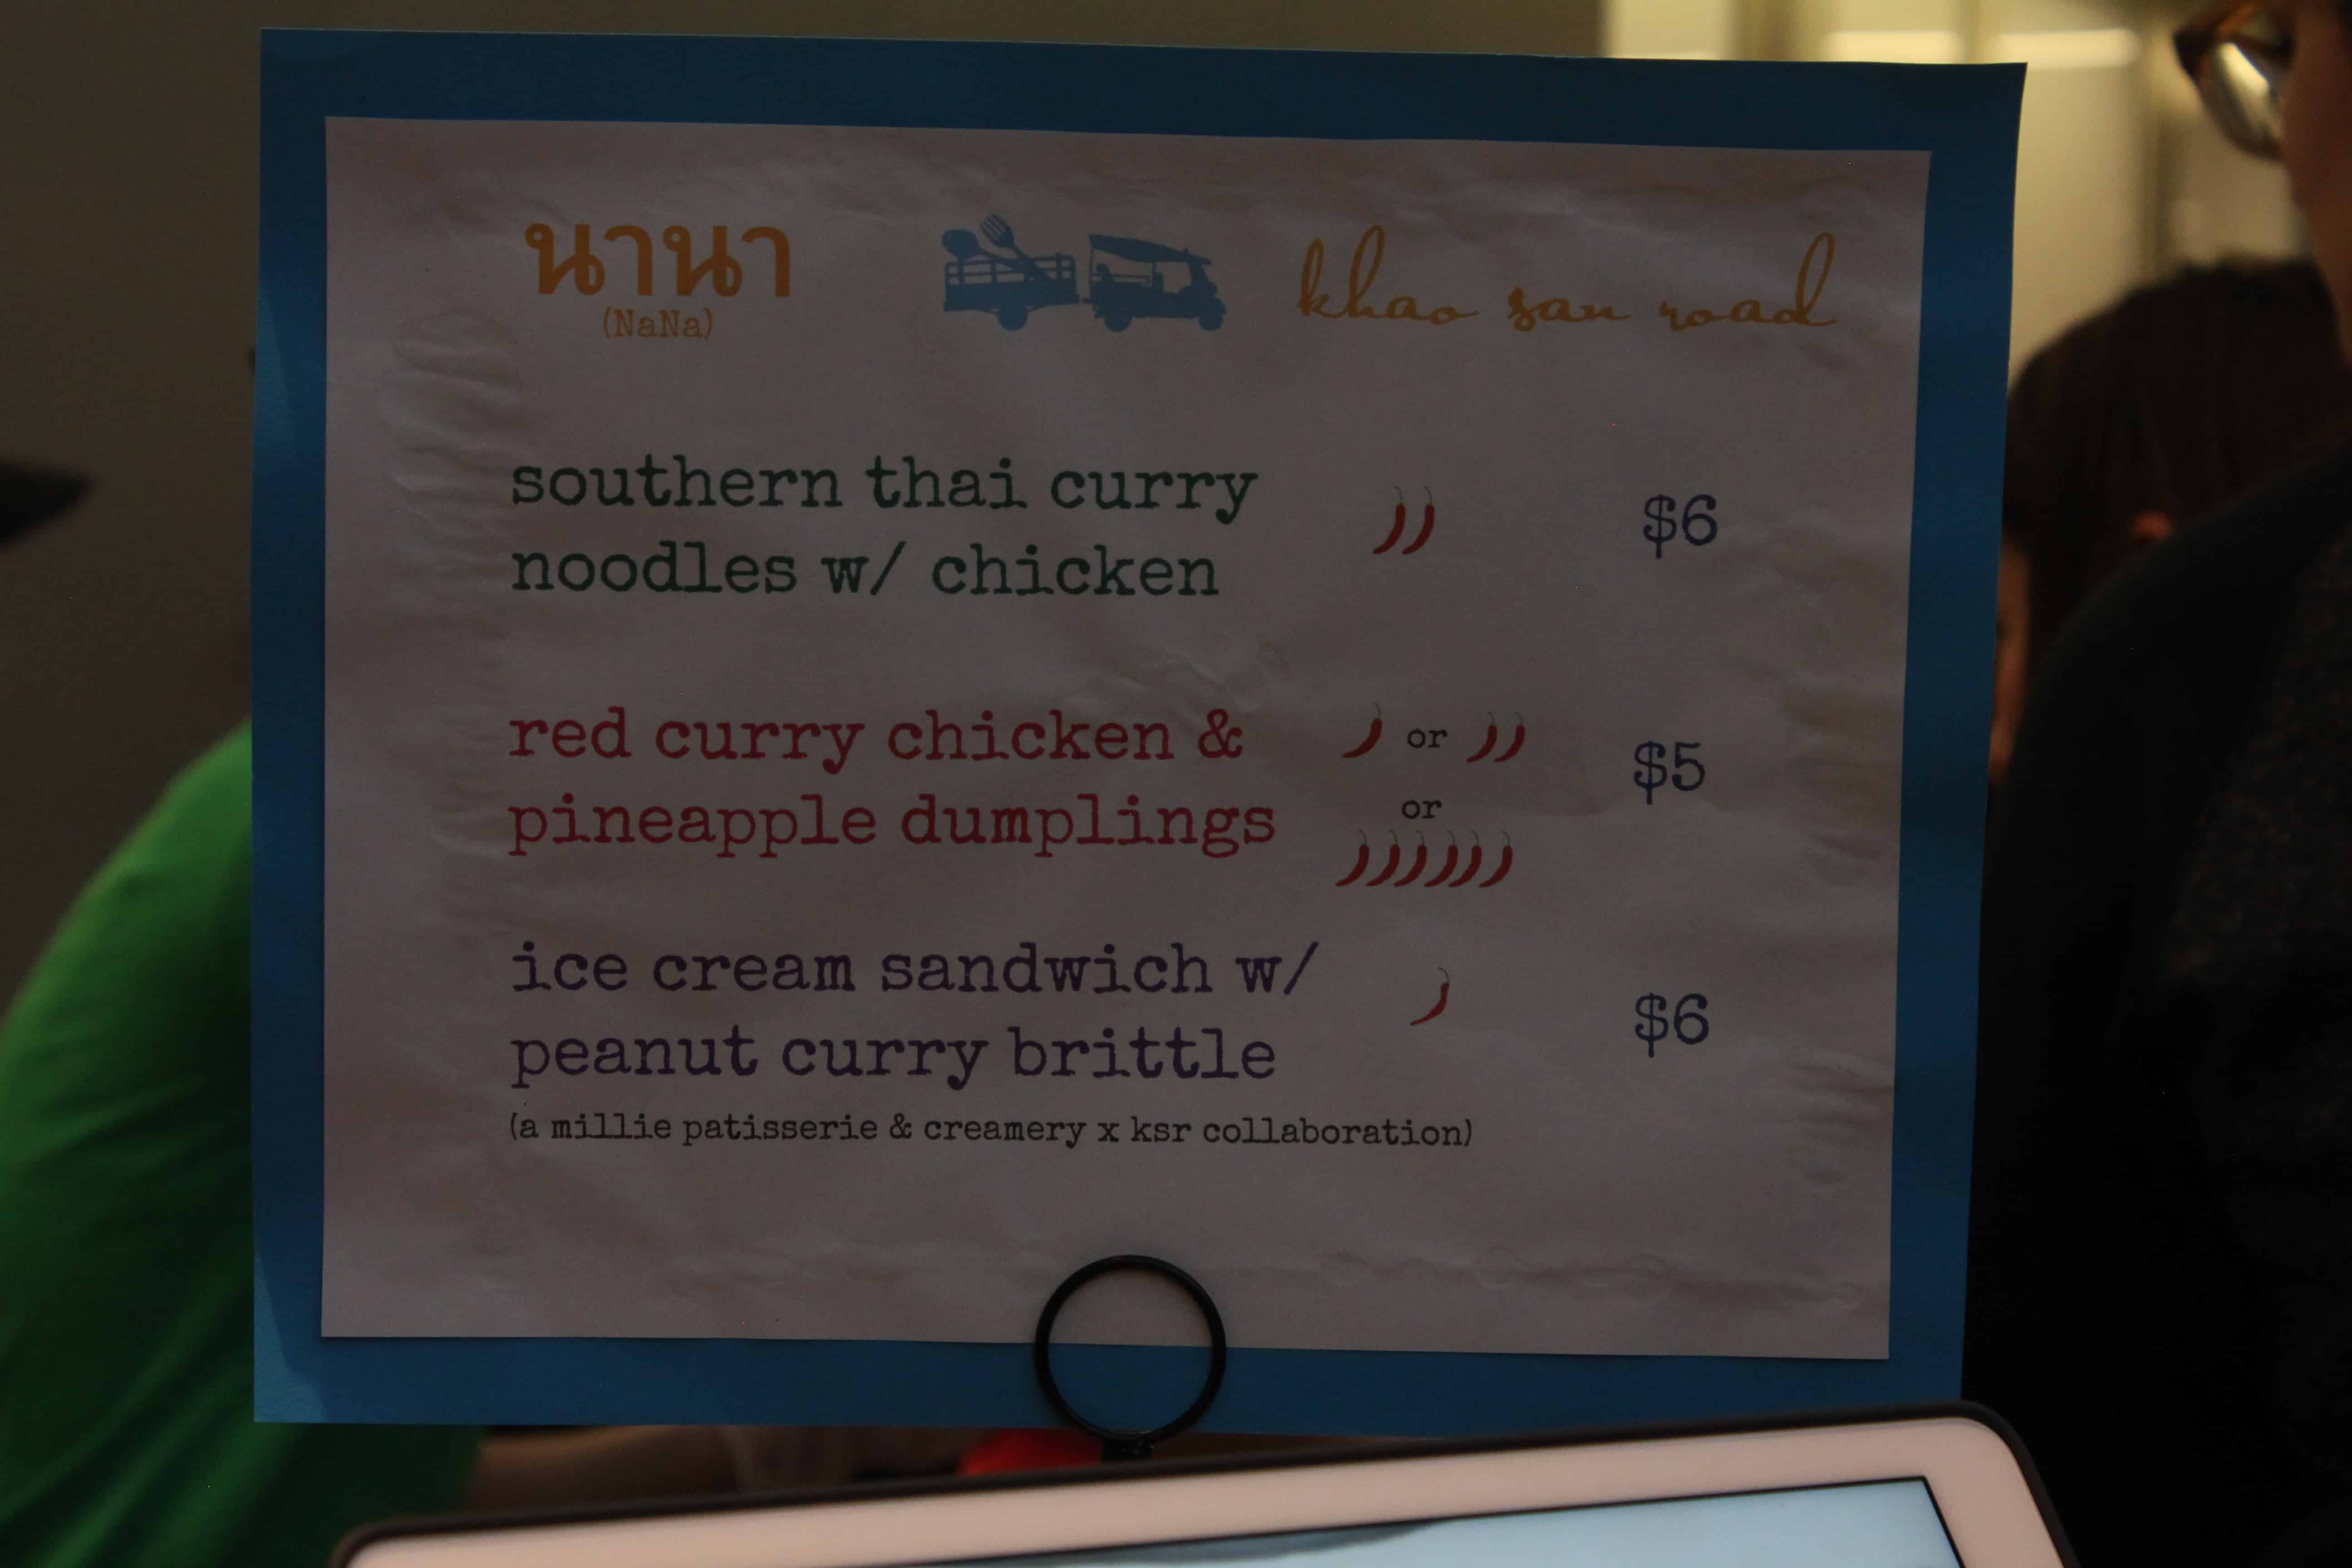 นานา
(NaNa)
khao san road
southern thai curry
noodles w/ chicken
$6
red curry chicken &
pineapple dumplings
or
or
$5
ice cream sandwich w/
peanut curry brittle
$6
(a millie patisserie & creamery x ksr collaboration)